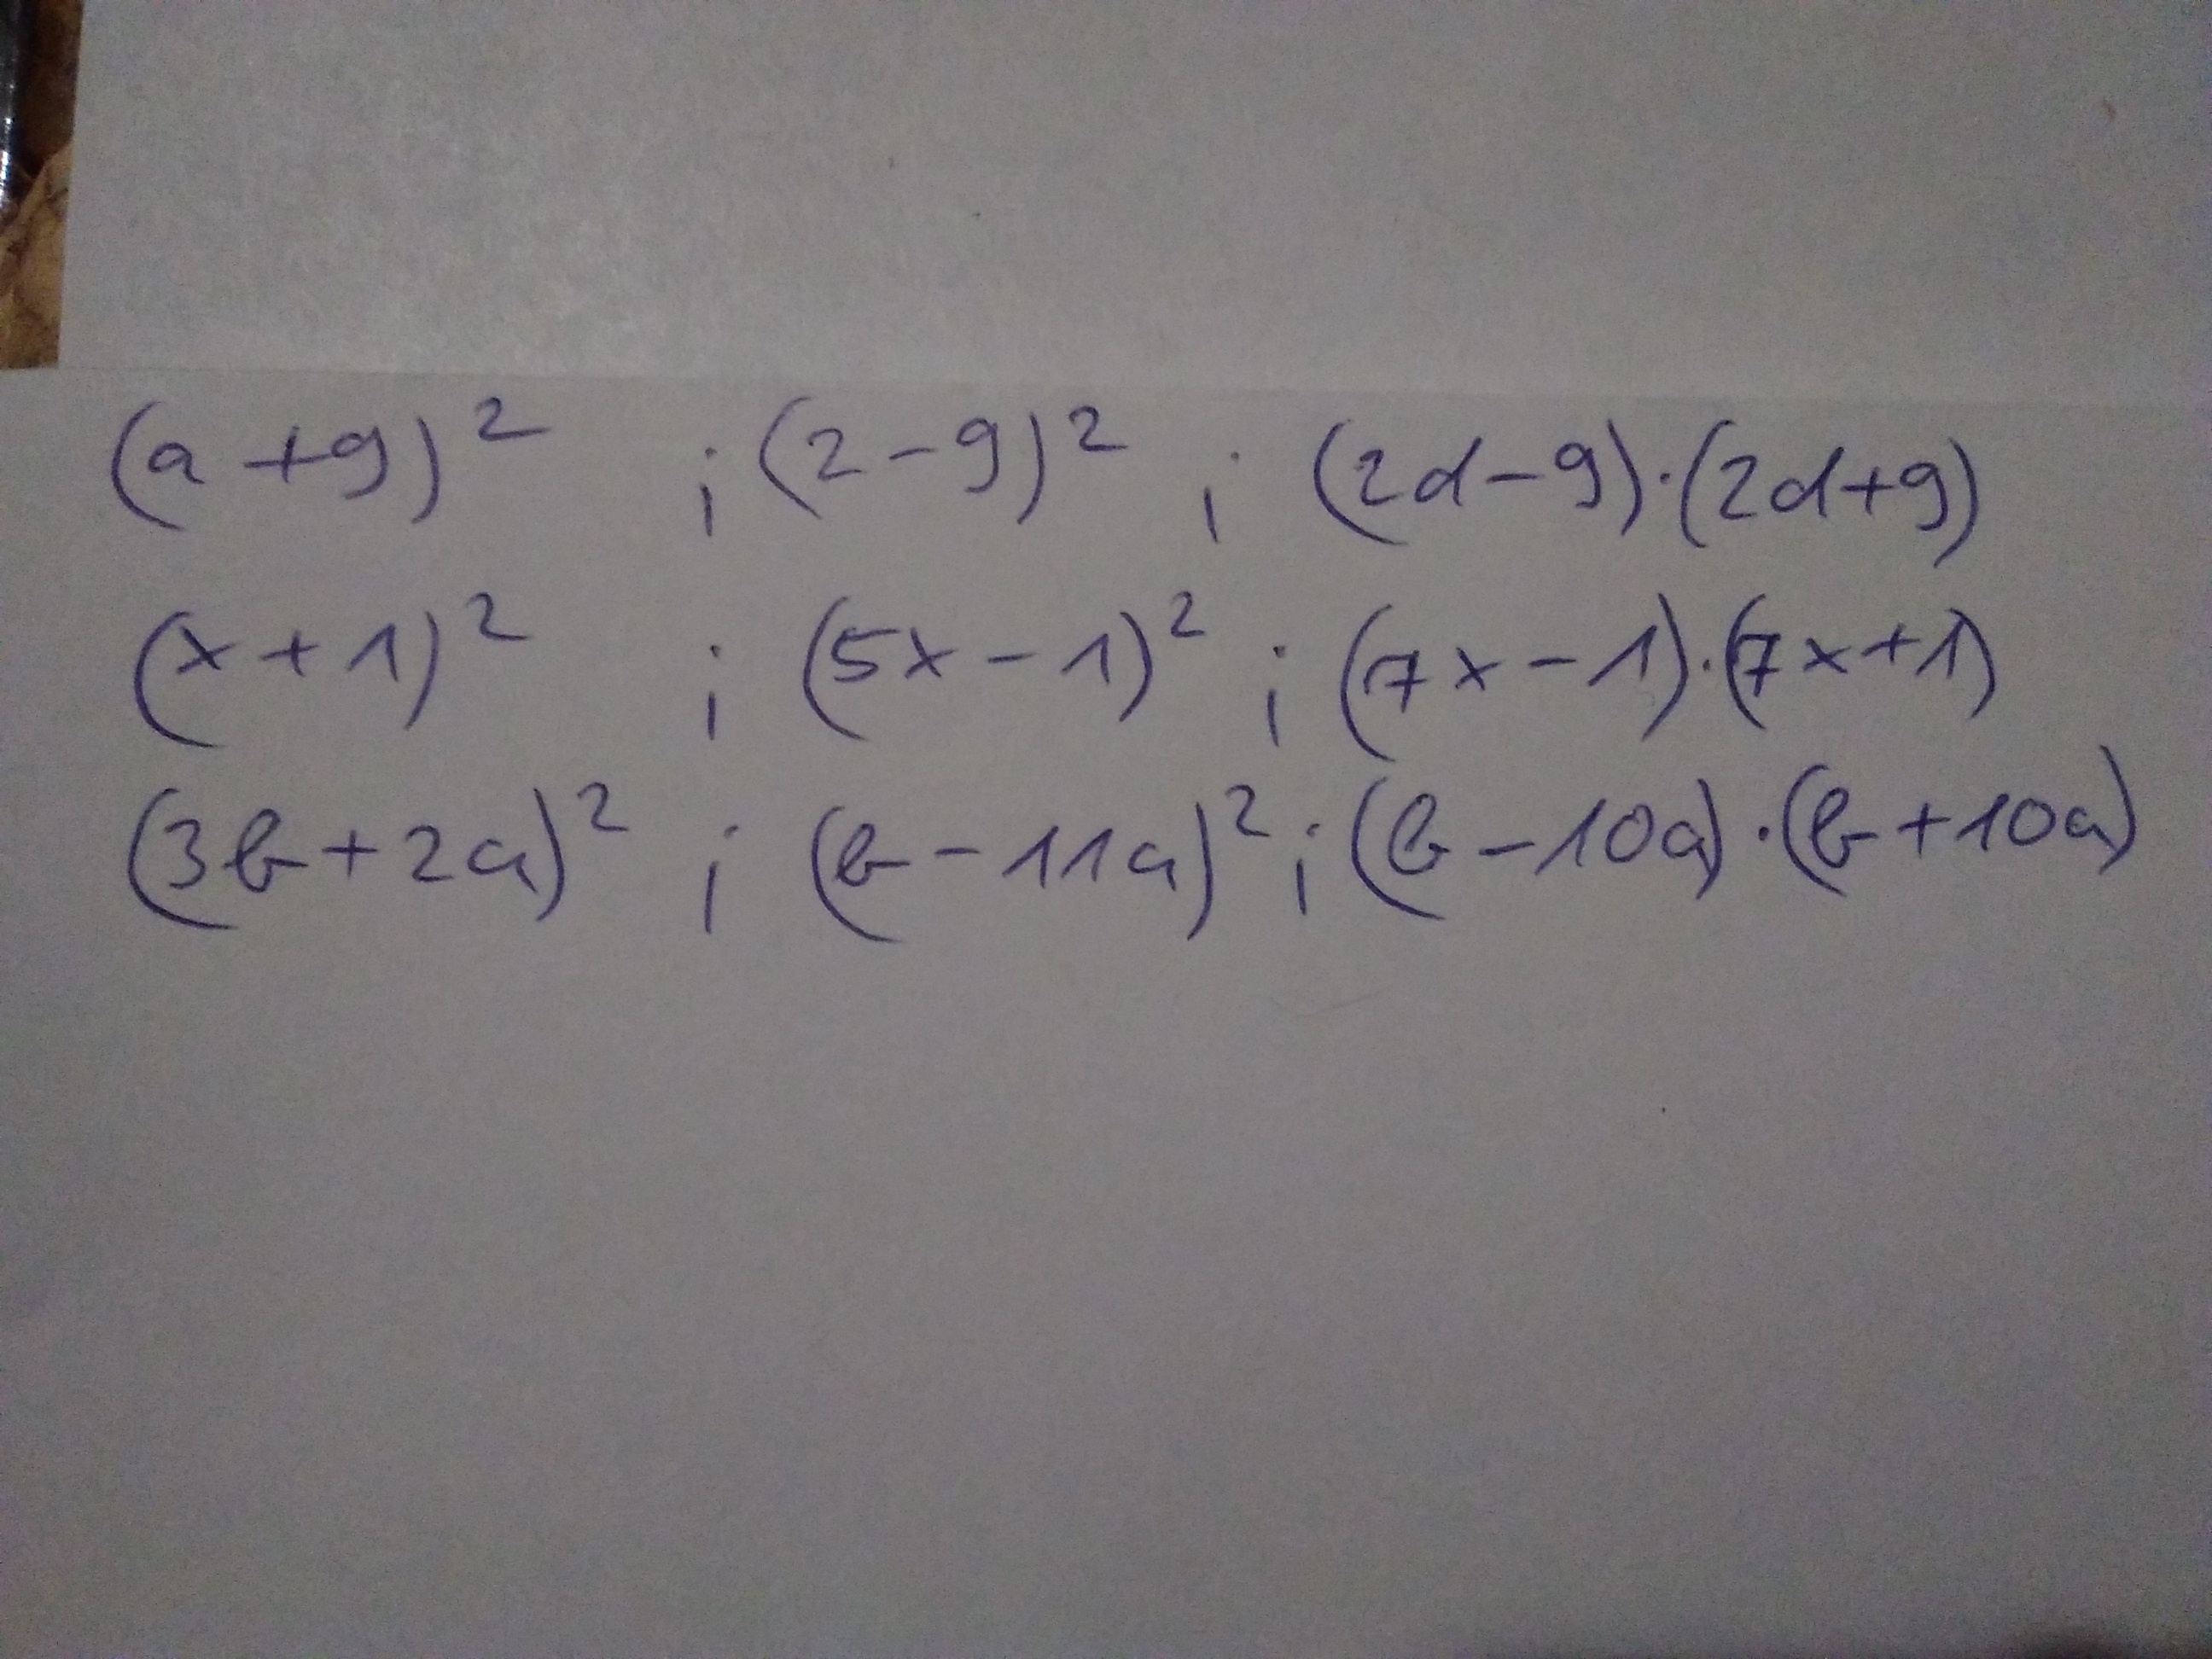 (a+9)² ; (2-9)² ; (2d-9)·(2d+9)
(x+1)² ; (5x-1)² ; (7x-1)·(7x+1)
(3b+2a)² ; (b-11a)² ; (b-10a)·(b+10a)